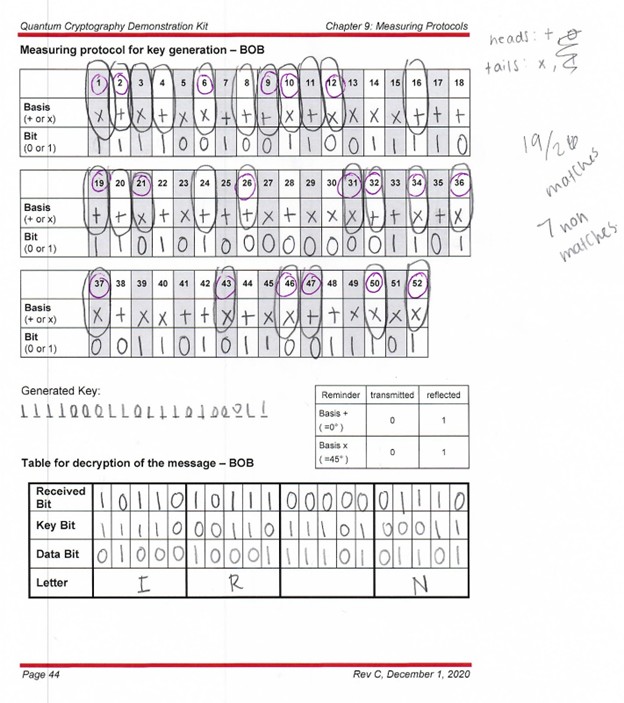 Quantum Cryptography Demonstration Kit Chapter 9: Measuring Protocols
Measuring protocol for key generation – BOB
heads: +
tails: x
1 2 3 4 5 6 7 8 9 10 11 12 13 14 15 16 17 18
Basis (+ or x) x + x + x x + + + x + x x x x + + +
Bit (0 or 1) 1 1 1 1 0 0 1 0 0 1 1 0 0 1 1 1 1 0
19/26
matches
7 non
matches
19 20 21 22 23 24 25 26 27 28 29 30 31 32 33 34 35 36
Basis (+ or x) + + x + x + x + x + x x x + + x + + x
Bit (0 or 1) 1 1 0 1 0 1 0 0 0 0 0 0 0 0 1 1 0 1
37 38 39 40 41 42 43 44 45 46 47 48 49 50 51 52
Basis (+ or x) x + x x + + x + x x + + x x x x
Bit (0 or 1) 0 0 1 1 0 1 0 1 1 0 0 1 1 1 0 1
Generated Key:
1 1 1 1 0 0 0 1 1 0 1 1 1 0 1 0 0 0 1 1
Reminder transmitted reflected
Basis + (=0°) 0 1
Basis x (=45°) 0 1
Table for decryption of the message – BOB
Received Bit 1 0 1 1 0 1 0 1 1 1 0 0 0 0 0 0 1 1 1 0
Key Bit 1 1 1 1 0 0 0 1 1 0 1 1 1 0 1 0 0 0 1 1
Data Bit 0 1 0 0 0 1 0 0 0 1 1 1 1 0 1 0 1 1 0 1
Letter I R N
Page 44 Rev C, December 1, 2020